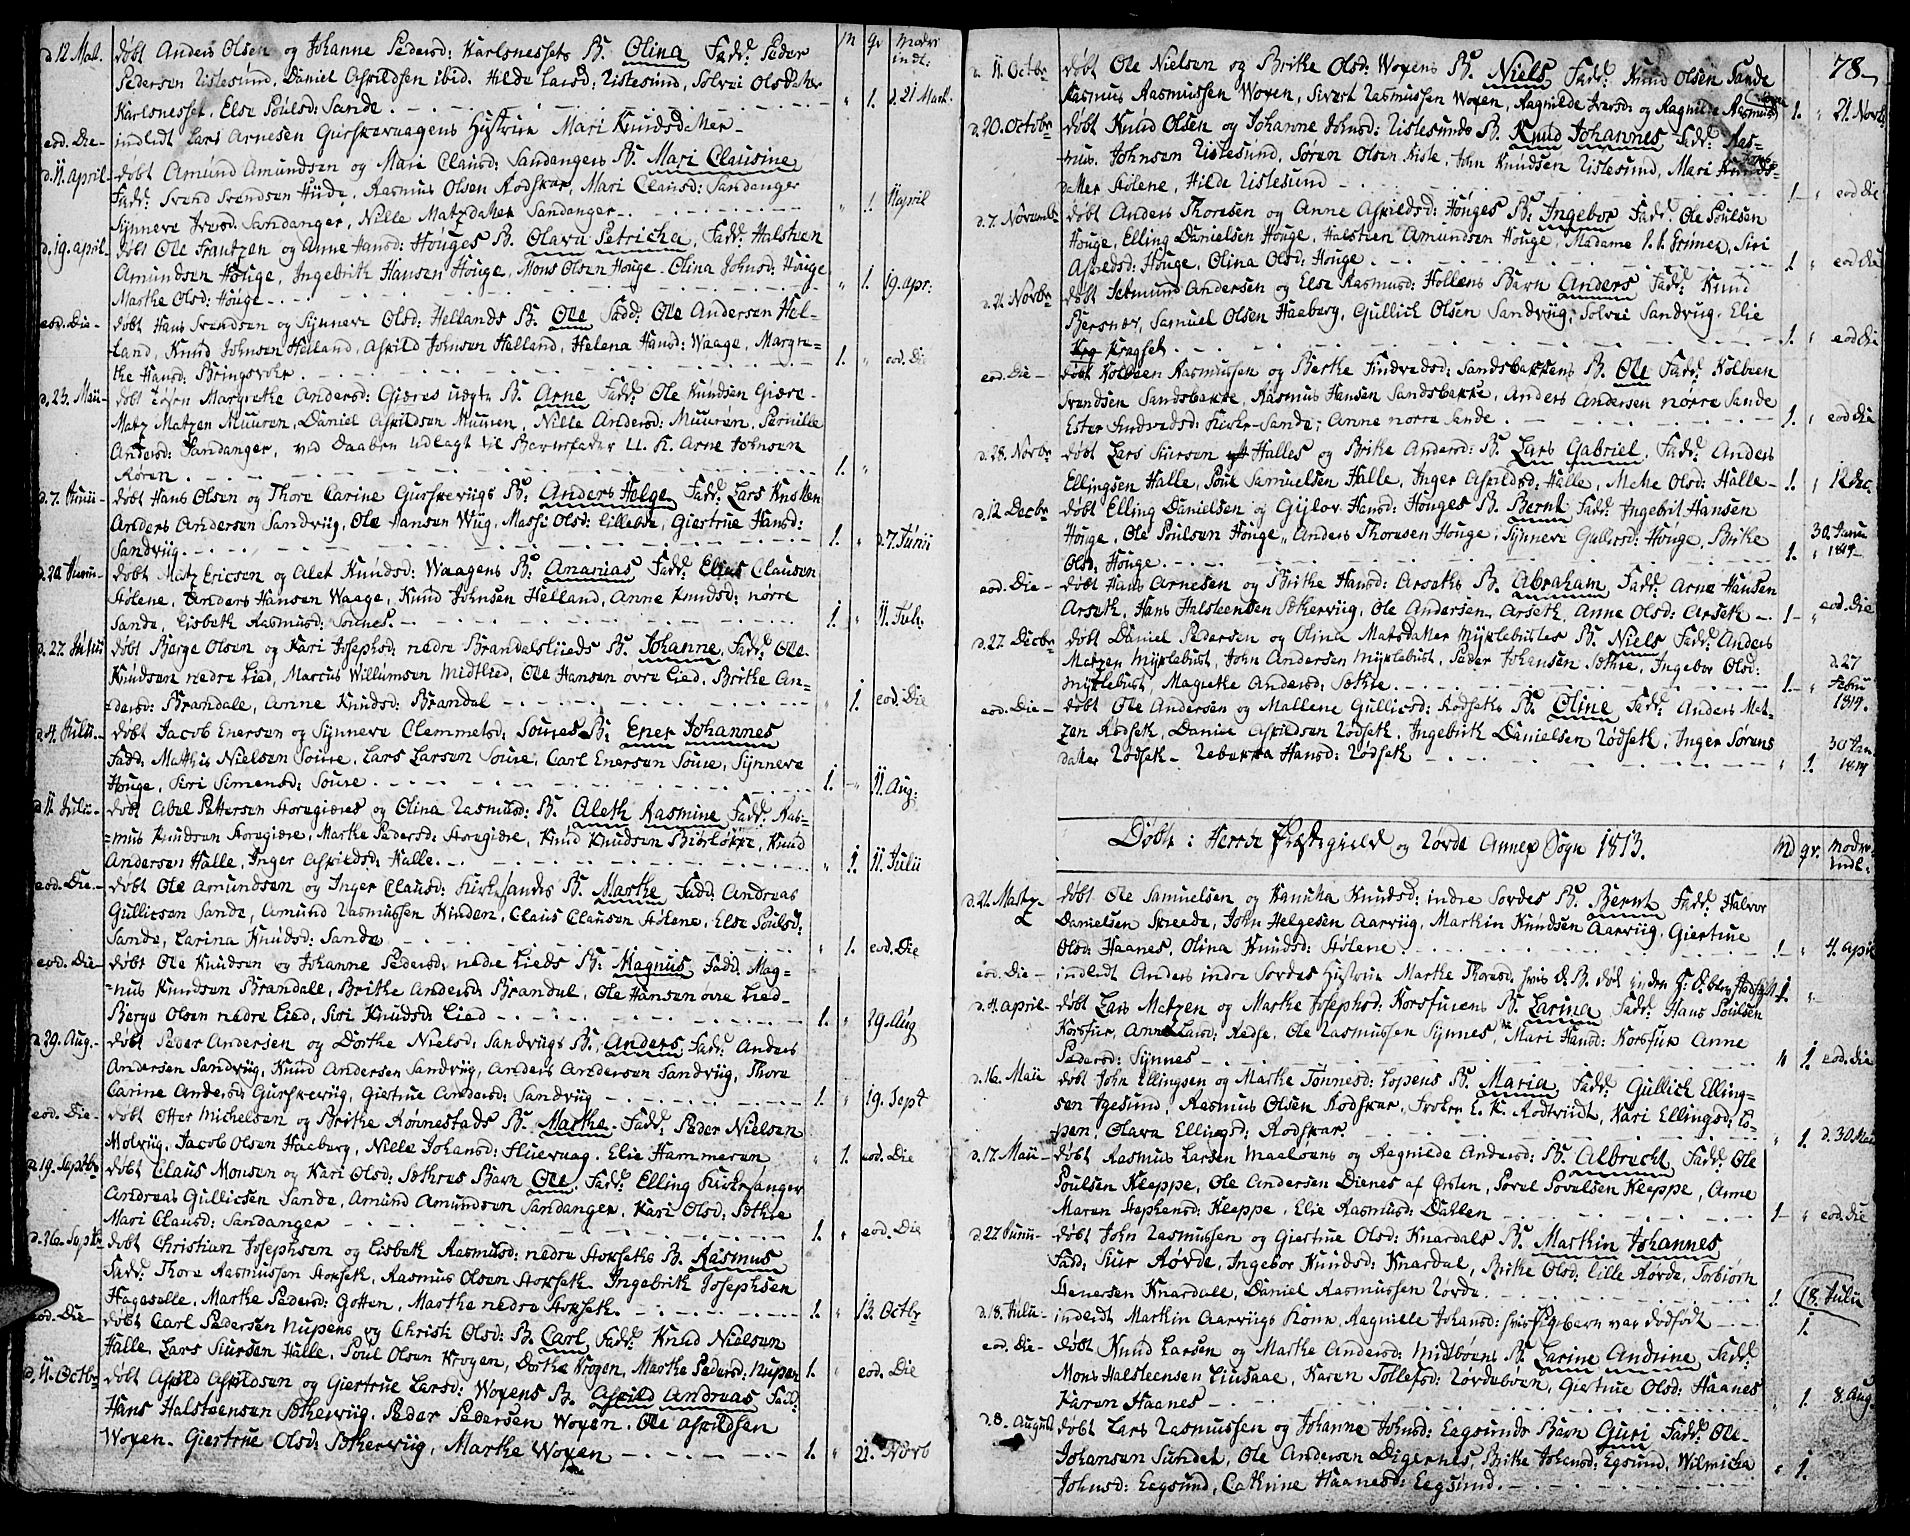 M qv Modri indl:
d.12 Mart. døbt Anders Olsen og Johanne Peders: Karlsnessets B. Olina Fadd: Peder
Pedersen Listesund, Daniel Aspildsen ibid. Hilde Larsd: Listesund, Solvei Olsdatter
Karlsnesset, Else Poulsd: Sande. " 1. d.21 Mart.
eod. Die indledt Lars Arnesen Gurskevaagens Hystrue Mari Knudsdatter
d.11. april døbt Amund Amundsen og Mari Clausd: Sandangers B. Mari Clausine
Fadd: Svend Svendsen Hiide, Rasmus Olsen Rodskar, Mari Clausd: Sandanger
Synneve Iversd: Sandanger, Nille Matzdatter Sandanger. " 1. 11 april
d.19. april døbt Ole Frantzen og Anne Hansd: Houges B. Olava Petricka, Fadd: Halsteen
Amundsen Houge, Ingebrik Hansen Houge, Mons Olsen Houge. Olina Johnsd: Houge
Marthe Olsd: Houge " 1. 19. apr:
eod. Die døbt Hans Svendsen og Synneve Olsd: Hellands B. Ole Fadd: Ole Andersen Hel-
land, Knud Johnsen Helland, Aspild Johnsen Helland, Helena Hansd: Waage, Margre-
the Hansd: Bringsvohr 1. " eod. Die
d.23. Maii døbt Margrethe Andersd: Giæres B. Arne Fadd: Ole Knudsen Giære
Matz Matzen Muuren, Daniel Aspildsen Muuren, Nille Andersd: Muuren, Pernille
Andersd: Sandanger, ved Daaben udlagt til Barnefader U. K. Arne Johnsen
Røren 1. "
d.7. Junii døbt Hans Olsen og Thore Carine Gurskeviigs B: Anders Helge Fadd: Lars
Anders Andersen Sandviig, Ole Hansen Wiig, Massi Olsd: Giertrue Hansd:
Sandviig 1. " d.7. Junii
d.20 Junii døbt Matz Ericsen og Alet Knudsd: Waagens B: Ananias Fadd: Elias Clausen
Stølene, Anders Hansen Waage, Knud Johnsen Helland, Anne Knudsd: norre
Sande, Lisbeth Rasmusd: 1. " 11. Juli
d.27. Junii døbt Berge Olsen og Kari Josephsd: nedre Brandalsliids B: Johanne, Fadd: Ole
Knudsen nedre Lied, Marcus Willumsen Midtlied, Ole Hansen øvre Lied, Brithe An-
dersd: Brandale, Anne Knudsd: Brandal " 1. eod. Die
d.4. Julii døbt Jacob Enersen og Synneve Clemmetsd: B: Ener Johannes
Fadd: Matthis Nielsen Lars Larsen Carl Enersen Synneve
Houge, Siri Simensd: 1. " 11. Aug:
d.11. Julii døbt Abel Pettersen Storegiæres og Olina Rasmusd: B: Aleth Rasmine Fadd: Ras-
mus Knudsen Storegiære, Marthe Pedersd: Storegiære, Knud Knudsen Knud
Andersen Halle, Inger Aspildsd: Halle. " 1. 11. Julii
eod. Die døbt Ole Amundsen og Inger Clausd: B: Marthe Fadd: Andreas
Gullicsen Sande, Amund Rasmussen Kinden, Claus Clausen Stølene, Else Poulsd:
Sande, Larina Knudsd: Sande " 1. eod. Die
eod. Die døbt Ole Knudsen og Johanne Pedersd: nedre Lieds B: Magnus Fadd. Mag-
nus Knudsen Brandale, Brithe Andersd: Brandal, Ole Hansen øvre Lied
Berge Olsen nedre Lied, Siri Knudsd: Lied 1. " 29. Aug
d.29. Aug. døbt Peder Andersen og Dorthe Nielsd: Sandviigs B: Anders Fadd: Anders
Andersen Sandviig, Knud Andersen Sandviig, Anders Andersen Sandviig, Thore
Carine Andersd: Gurskeviig, Giertrue Andersd: Sandviig 1. " 19. Sept
eod. Die døbt Otter Michelsen og Brithe Rønnestads B: Marthe. Fadd: Peder Nielsen
Molviig, Jacob Olsen Haaberg, Nille Johansd: Elie Hammeren " 1. eod. Die
d.19. Septbr døbt Claus Monsen og Kari Olsd: Sæthres Barn Ole. Fadd: Elling Kirkesanger
Andreas Gullicsen Sande, Amund Amundsen Sandanger, Kari Olsd: Sæthre
Mari Clausd: Sandanger 1. " eod. Die
d.26. Septbr døbt Christian Josephsen og Lisbeth Rasmusd: nedre Storsæths B. Rasmus
Fadd: Thore Rasmussen Storsæth, Rasmus Olsen Storsæth, Ingebrik Josephsen
Hageselle, Marthe Pedersd: Gotten, Marthe nedre Storsæth. 1. " 13. Octbr
eod. Die døbt Carl Pedersen Nupens og Christi Olsd: B: Carl, Fadd: Knud Nielsen
Halle, Lars Siursen Halle, Poul Olsen Krogen, Dorthe Krogen, Marthe Pedersd: Nupen 1. " eod. Die
d.11. Octbr døbt Aspild Aspildsen og Giertrue Larsd: Woxens B. Aspild Andreas Fadd:
Hans Halsteensen Peder Pedersen Woxen. Ole Aspildsen
Woxen. Giertrue Olsd: Marthe Woxen 1. " 21. Novb
78
d. 11. Octbr døbt Ole Nielsen og Brithe Olsd: Woxens B. Niels Fadd: Knud Olsen Sande
Rasmus Rasmussen Woxen, Sivert Rasmussen Woxen, Ragnilde Iversd: og Ragnilde Rasmusd: 1. " 21. Novb
d.20. Octobr døbt Knud Olsen og Johanne Johnsd: Listesunds B. Knud Johannes Fadd: Ras-
mus Johnsen Listesund, Søren Olsen John Knudsen Listesund, Mari Knuds-
datter Stølene, Hilde Listesund 1. " eod Die
d.7. Novembr døbt Anders Thoresen og Anne Aspildsd: Houges B: Ingebor Fadd: Ole Poulsen
Houge, Elling Danielsen Houge, Halsteen Amundsen Houge, Madame Siri
Houge, Olina Olsd: Houge 1. " eod die
d.21. Novbr døbt Setmund Andersen og Else Rasmusd: Hollens Barn Anders Fadd: Knud
Samuel Olsen Haaberg, Gullich Olsen Sandviig, Solvei Sandviig. Elie
Krogset. 1. " eod Die
eod. Die døbt Kolbeen Rasmussen og Berthe Sandsbakkens B. Ole Fadd: Kolbeen
Svendsen Sandsbakke, Rasmus Hansen Sandsbakke, Anders Andersen nörre Sande
Ester Kirke-Sande, Anne norre Sande. 1. " eod Die
d.28. Novbr døbt Lars Siursen Halles og Brithe Andersd: B. Lars Gabriel. Fadd: Anders
Ellingsen Halle, Poul Samuelsen Halle, Inger Aspildsd: Halle, Mette Olsd: Halle 1. " 12 Dec.
d.12 Decbr døbt Elling Danielsen og Gyslov Hansd: Houges B. Bernt Fadd: Ingebrit Hansen
Houge, Ole Poulsen Houge, Anders Thoresen Houge, Synneve Gullicsd: Houge, Brithe
Olsd: Houge. 1. " 30. Januari 1819
eod. Die døbt Hans Arnesen og Brithe Hansd: Arsæths B. Abraham Fadd: Arne Hansen
Arsæth, Hans Halsteensen Ole Andersen Arsæth, Anne Olsd: Arsæth 1. " eod. Die
d.27. Decbr døbt Daniel Pedersen og Olina Matsdatter Myklebusts B. Niels Fadd: Anders
Matzen Myklebust, John Andersen Myklebust, Peder Johansen Sæthre, Ingebor Olsd:
Myklebust, Magrethe Andersd: Sæthre. 1. " d.27 Febru 1819.
eod. Die døbt Ole Andersen og Mallene Gullicsd: Rødsæths B: Oline Fadd: Anders Mat-
zen Rødsæth, Daniel Aspildsen Rødsæth, Ingebrik Danielsen Rødsæth, Inger Sørens
datter Rødsæth, Rebekka Hansd: Rødsæth " 1. 30 Jan 1819
Døbt i Herrøe Præstegield og Rövde Annex Sogn 1813. M qv. Modri indl:
d.21. Martz døbt Ole Samuelsen og Knudsd: indre Sordes B. Bernt Fadd: Halvor
Danielsen Skreede, John Helgesen Aarviig, Marthin Knudsen Aarviig, Giertrue
Olsd: Haanes, Olina Knudsd: Stølene 1. " 4. april
eod. Die indledt Anders indre Sordes Hystrue Marthe Thoresd: hvis d. B. død 1. "
d.4. april døbt Lars Matzen og Marthe Josephsd: Korsfurens B. Larina Fadd: Hans Poulsen
Korsfur, Anne Larsd: Ole Rasmussen Synnes, Mari Hansd: Korsfur Anne
Pedersd: Synnes " 1. eod. die
d.16. Maii døbt John Ellingsen og Marthe Tønnesd: Lopens B. Maria Fadd: Gullich Elling-
sen Igesund, Rasmus Olsen Rodskar, Froken E. K. Rodtvidt, Kari Ellingsd: Lo-
pen, Olava Ellingsd: Rodskar. " 1. d.30. Maii
d.17. Maii døbt Rasmus Larsen Maaloens og Ragnilde Andersd: B: Albrecht Fadd: Ole
Poulsen Kleppe, Ole Andersen Dienes af Ørsten, Povel Povelsen Kleppe, Anne
Maren Stephensd: Kleppe, Elie Rasmusd: Dahlen 1. " eod. die
d.27 Junii døbt John Rasmussen og Giertrue Olsd: Knardals B. Marthin Johannes
Fadd: Siur Røvde, Ingebor Knudsd: Knardal, Brithe Olsd: lille Røvde, Torbiørn
Stenersen Knardale, Daniel Rasmussen Rövde. 1. 18. Julii
d.18. Julii indledt Marthin Aarviigs Kone, Ragnille Johansd: hvis Pigebarn var dødfødt 1.
eod. Die døbt Knud Larsen og Marthe Andersd: Midtbøens B. Larine Andrine Fadd:
Mons Halsteensen Liusaae, Karen Tollefsd: Rövdeboen, Giertrue Olsd: Haanes
Karen Haanes " 1. 8. Aug
d.8. August døbt Lars Rasmussen og Johanne Johnsd: Eegsunds Barn Guri Fadd: Ole
Johansen Sundet, Ole Andersen Digernes, Brithe Johansd: Egsund, Wilmicka
Johnsd: Eegsund, Cathrine Haanesd: Eegsund. " 1.